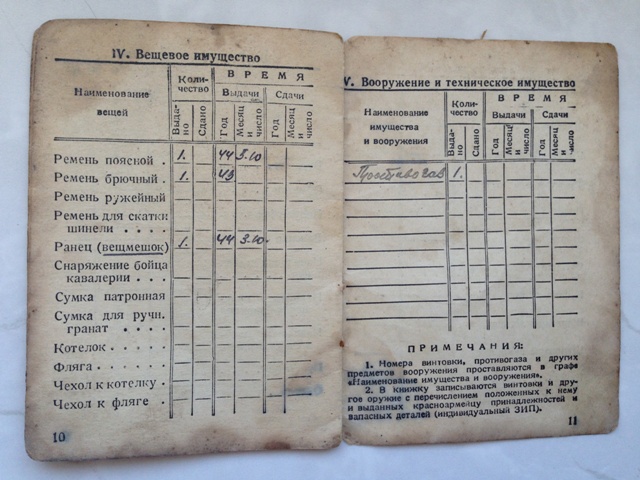 IV. Вещевое имущество
Наименование вещей
Коли-
чество
ВРЕМЯ
Выдачи
Сдачи
Выда-
но
Сдано
Год
Месяц
и
число
Год
Месяц
и
число
Ремень поясной . 1. 44 3.10
Ремень брючный . 1. 43
Ремень ружейный
Ремень для скатки
шинели . .
Ранец (вещмешок) 1. 44 3.10.
Снаряжение бойца
кавалерии . . .
Сумка патронная
Сумка для ручн.
гранат . . . .
Котелок . . . .
Фляга . . . . .
Чехол к котелку .
Чехол к фляге .
10
V. Вооружение и техническое имущество
Наименование
имущества
и вооружения
Коли-
чество
ВРЕМЯ
Выдачи
Сдачи
Выда-
но
Сдано
Год
Месяц
и
число
Год
Месяц
и
число
1.
ПРИМЕЧАНИЯ:
1. Номера винтовки, противогаза и других
предметов вооружения проставляются в графе
«Наименование имущества и вооружения».
2. В книжку записываются винтовки и дру-
гое оружие с перечислением положенных к нему
и выданных красноармейцу принадлежностей и
запасных деталей (индивидуальный ЗИП).
11